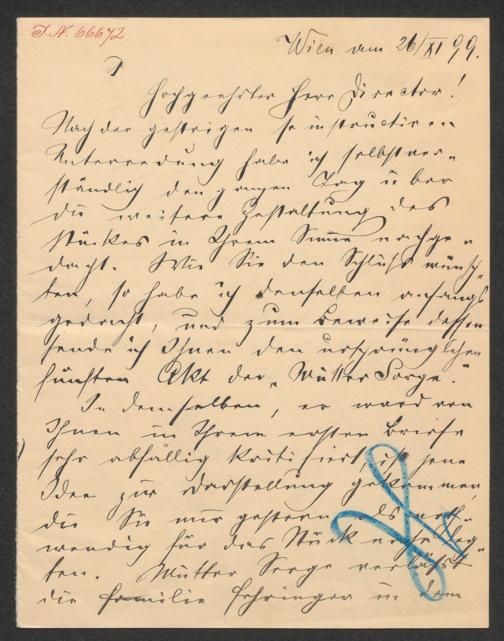 I.N. 66672
Wien am 26/XI 99.
Hochgeehrter Herr Director!
Nach der gestrigen so instructiven
Unterredung habe ich selbstver-
ständlich den ganzen Tag über
die weitere Gestaltung des
Stückes in Ihrem Sinne nachge-
dacht. Wie Sie den Schluß wünsch-
ten, so habe ich denselben anfangs
gedacht, und zum Beweise dessen
sende ich Ihnen den ursprünglichen
fünften Akt der „Mutter Sorge".
In demselben, er ward von
Ihnen in Ihrem ersten Briefe
sehr abfällig kritisiert, ist jene
Idee zur Darstellung gekommen,
die Sie mir gestern als noth-
wendig für das Stück
ten. Mutter Sorge verläßt
die Familie Fehringer in dem